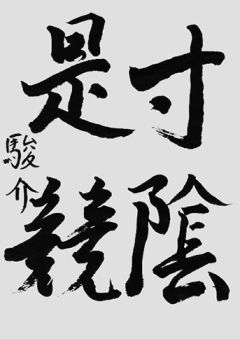 寸陰
是競
駿介